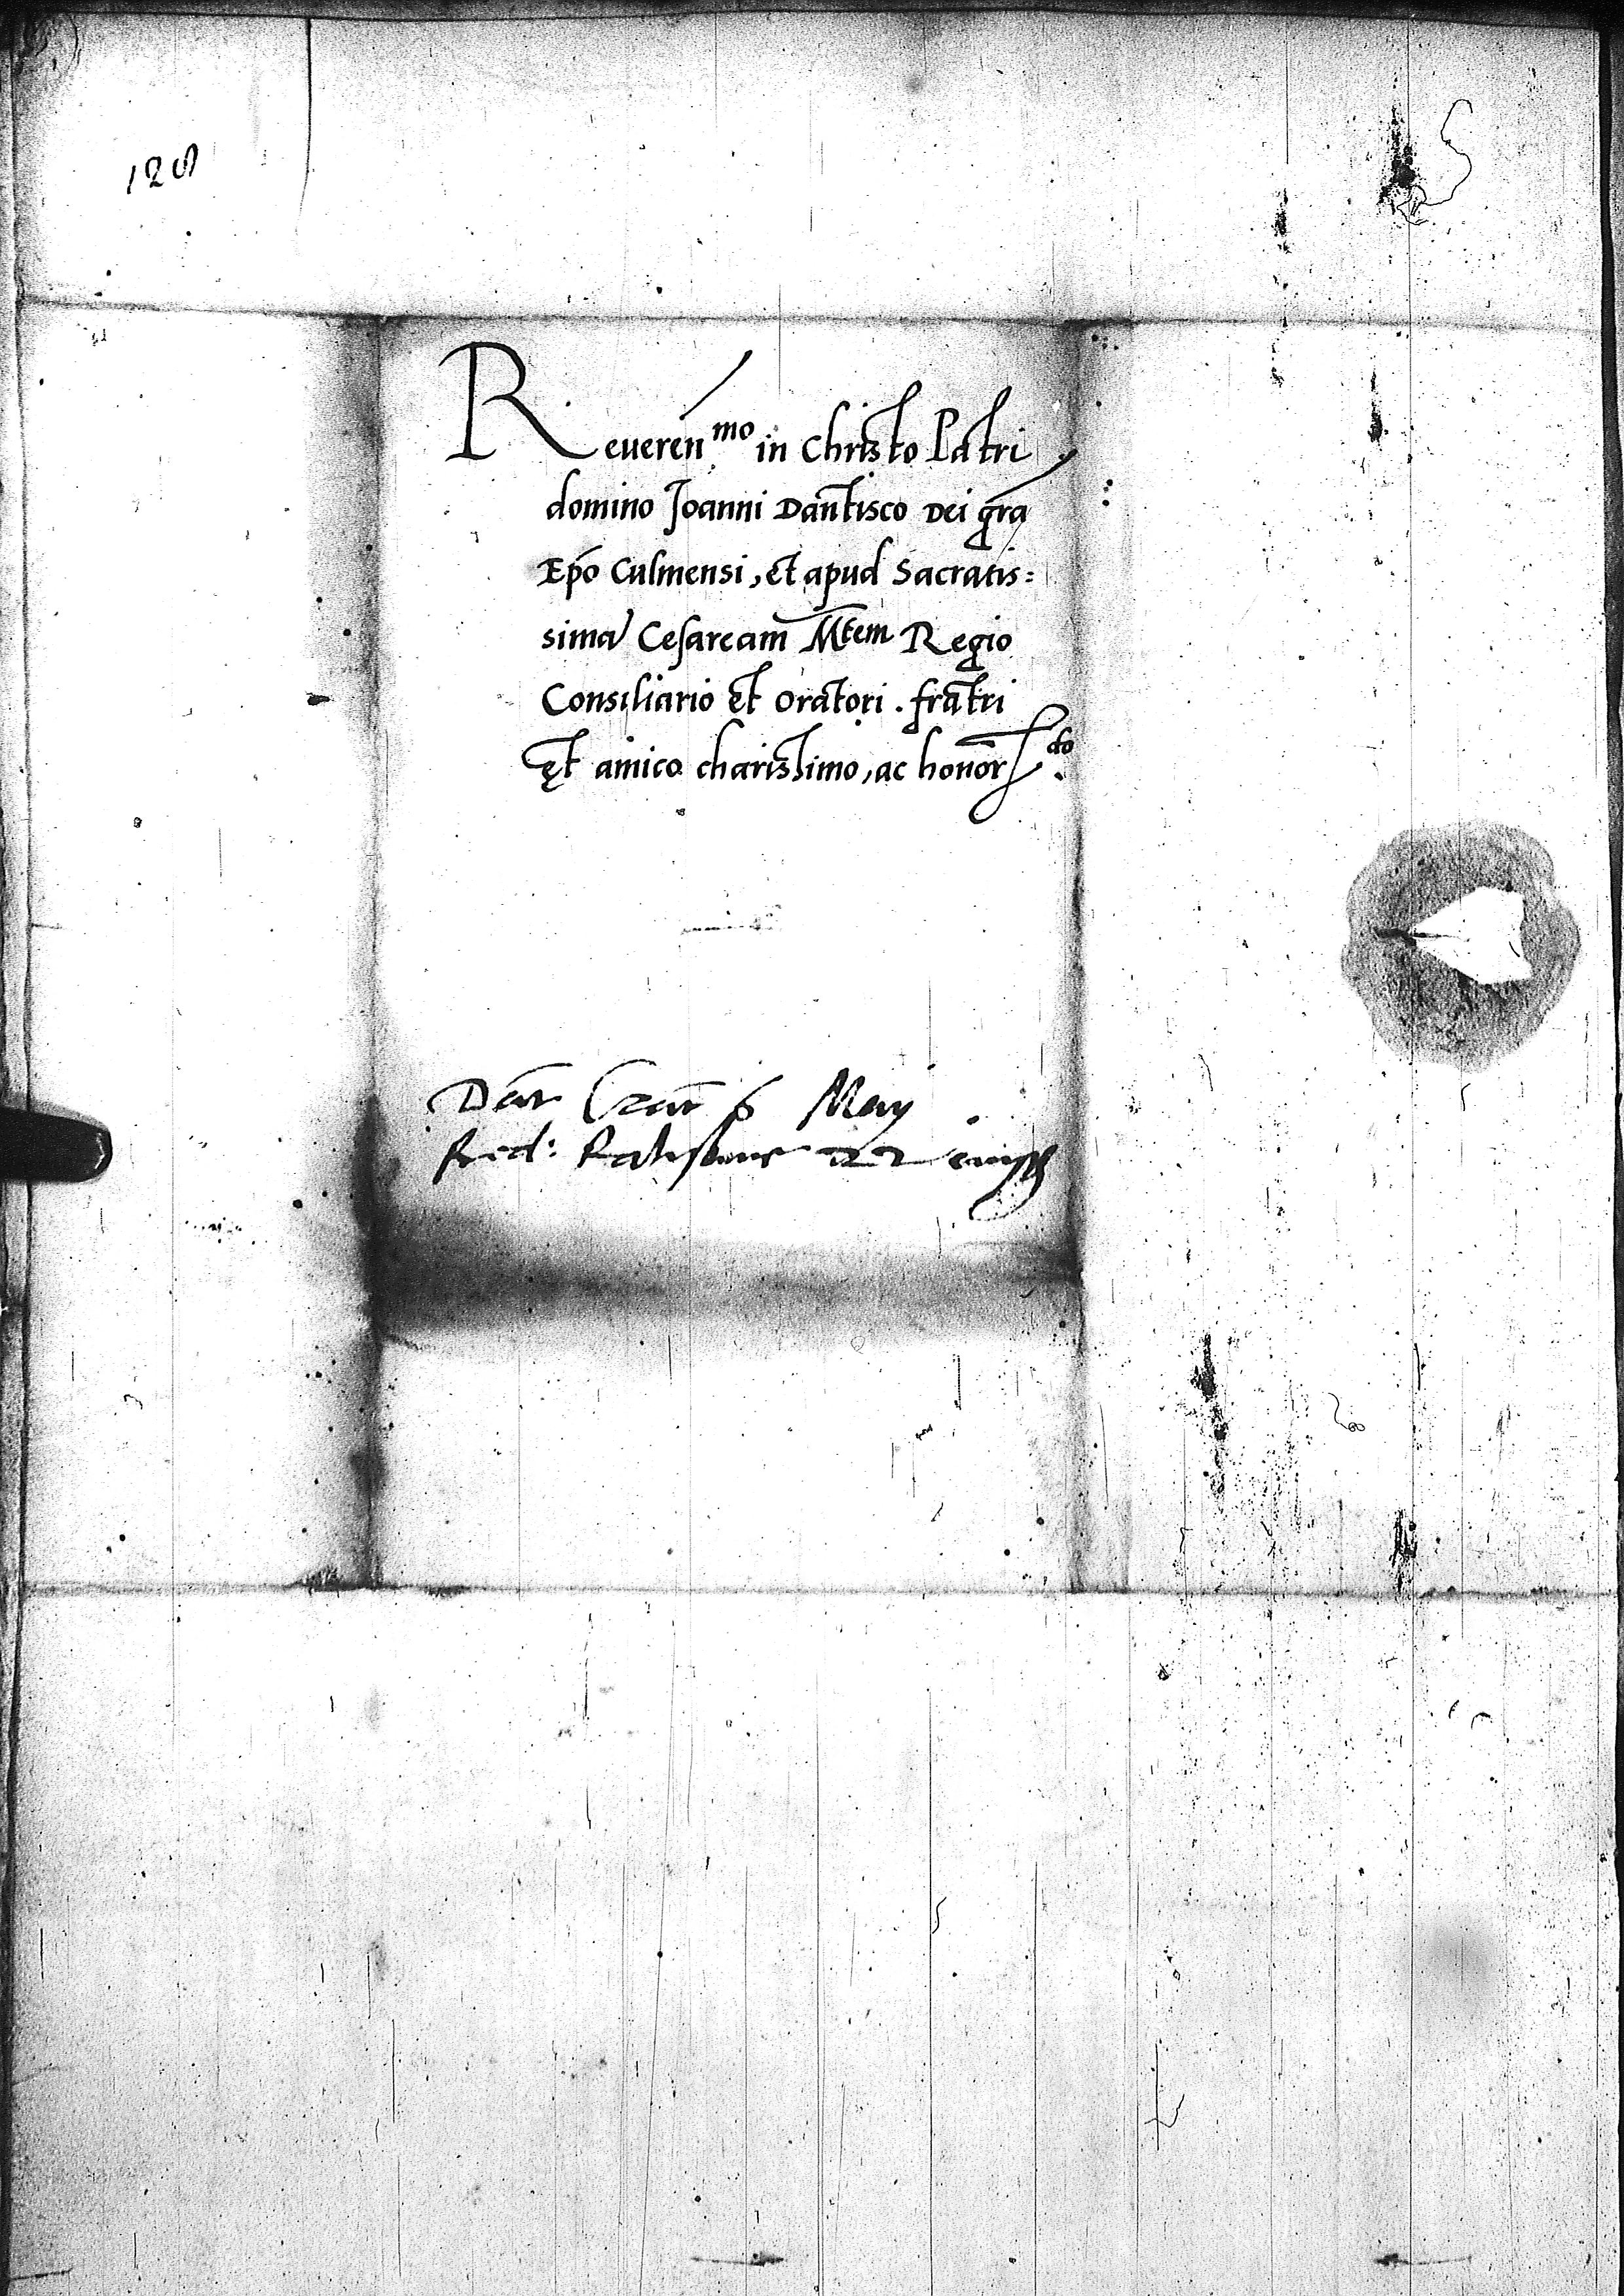 128
Reueren^mo in Christo Patri
domino Joanni Dantisco Dei gr̃a
Ep̃o Culmensi, et apud Sacratis=
simã Cesaream M^tem Regio
Consiliario et Oratori. fratri
et amico charissimo, ac honor^do.
Dat̃ Crac̃ 6 May
Red: Ratispone 22 eiusd̃